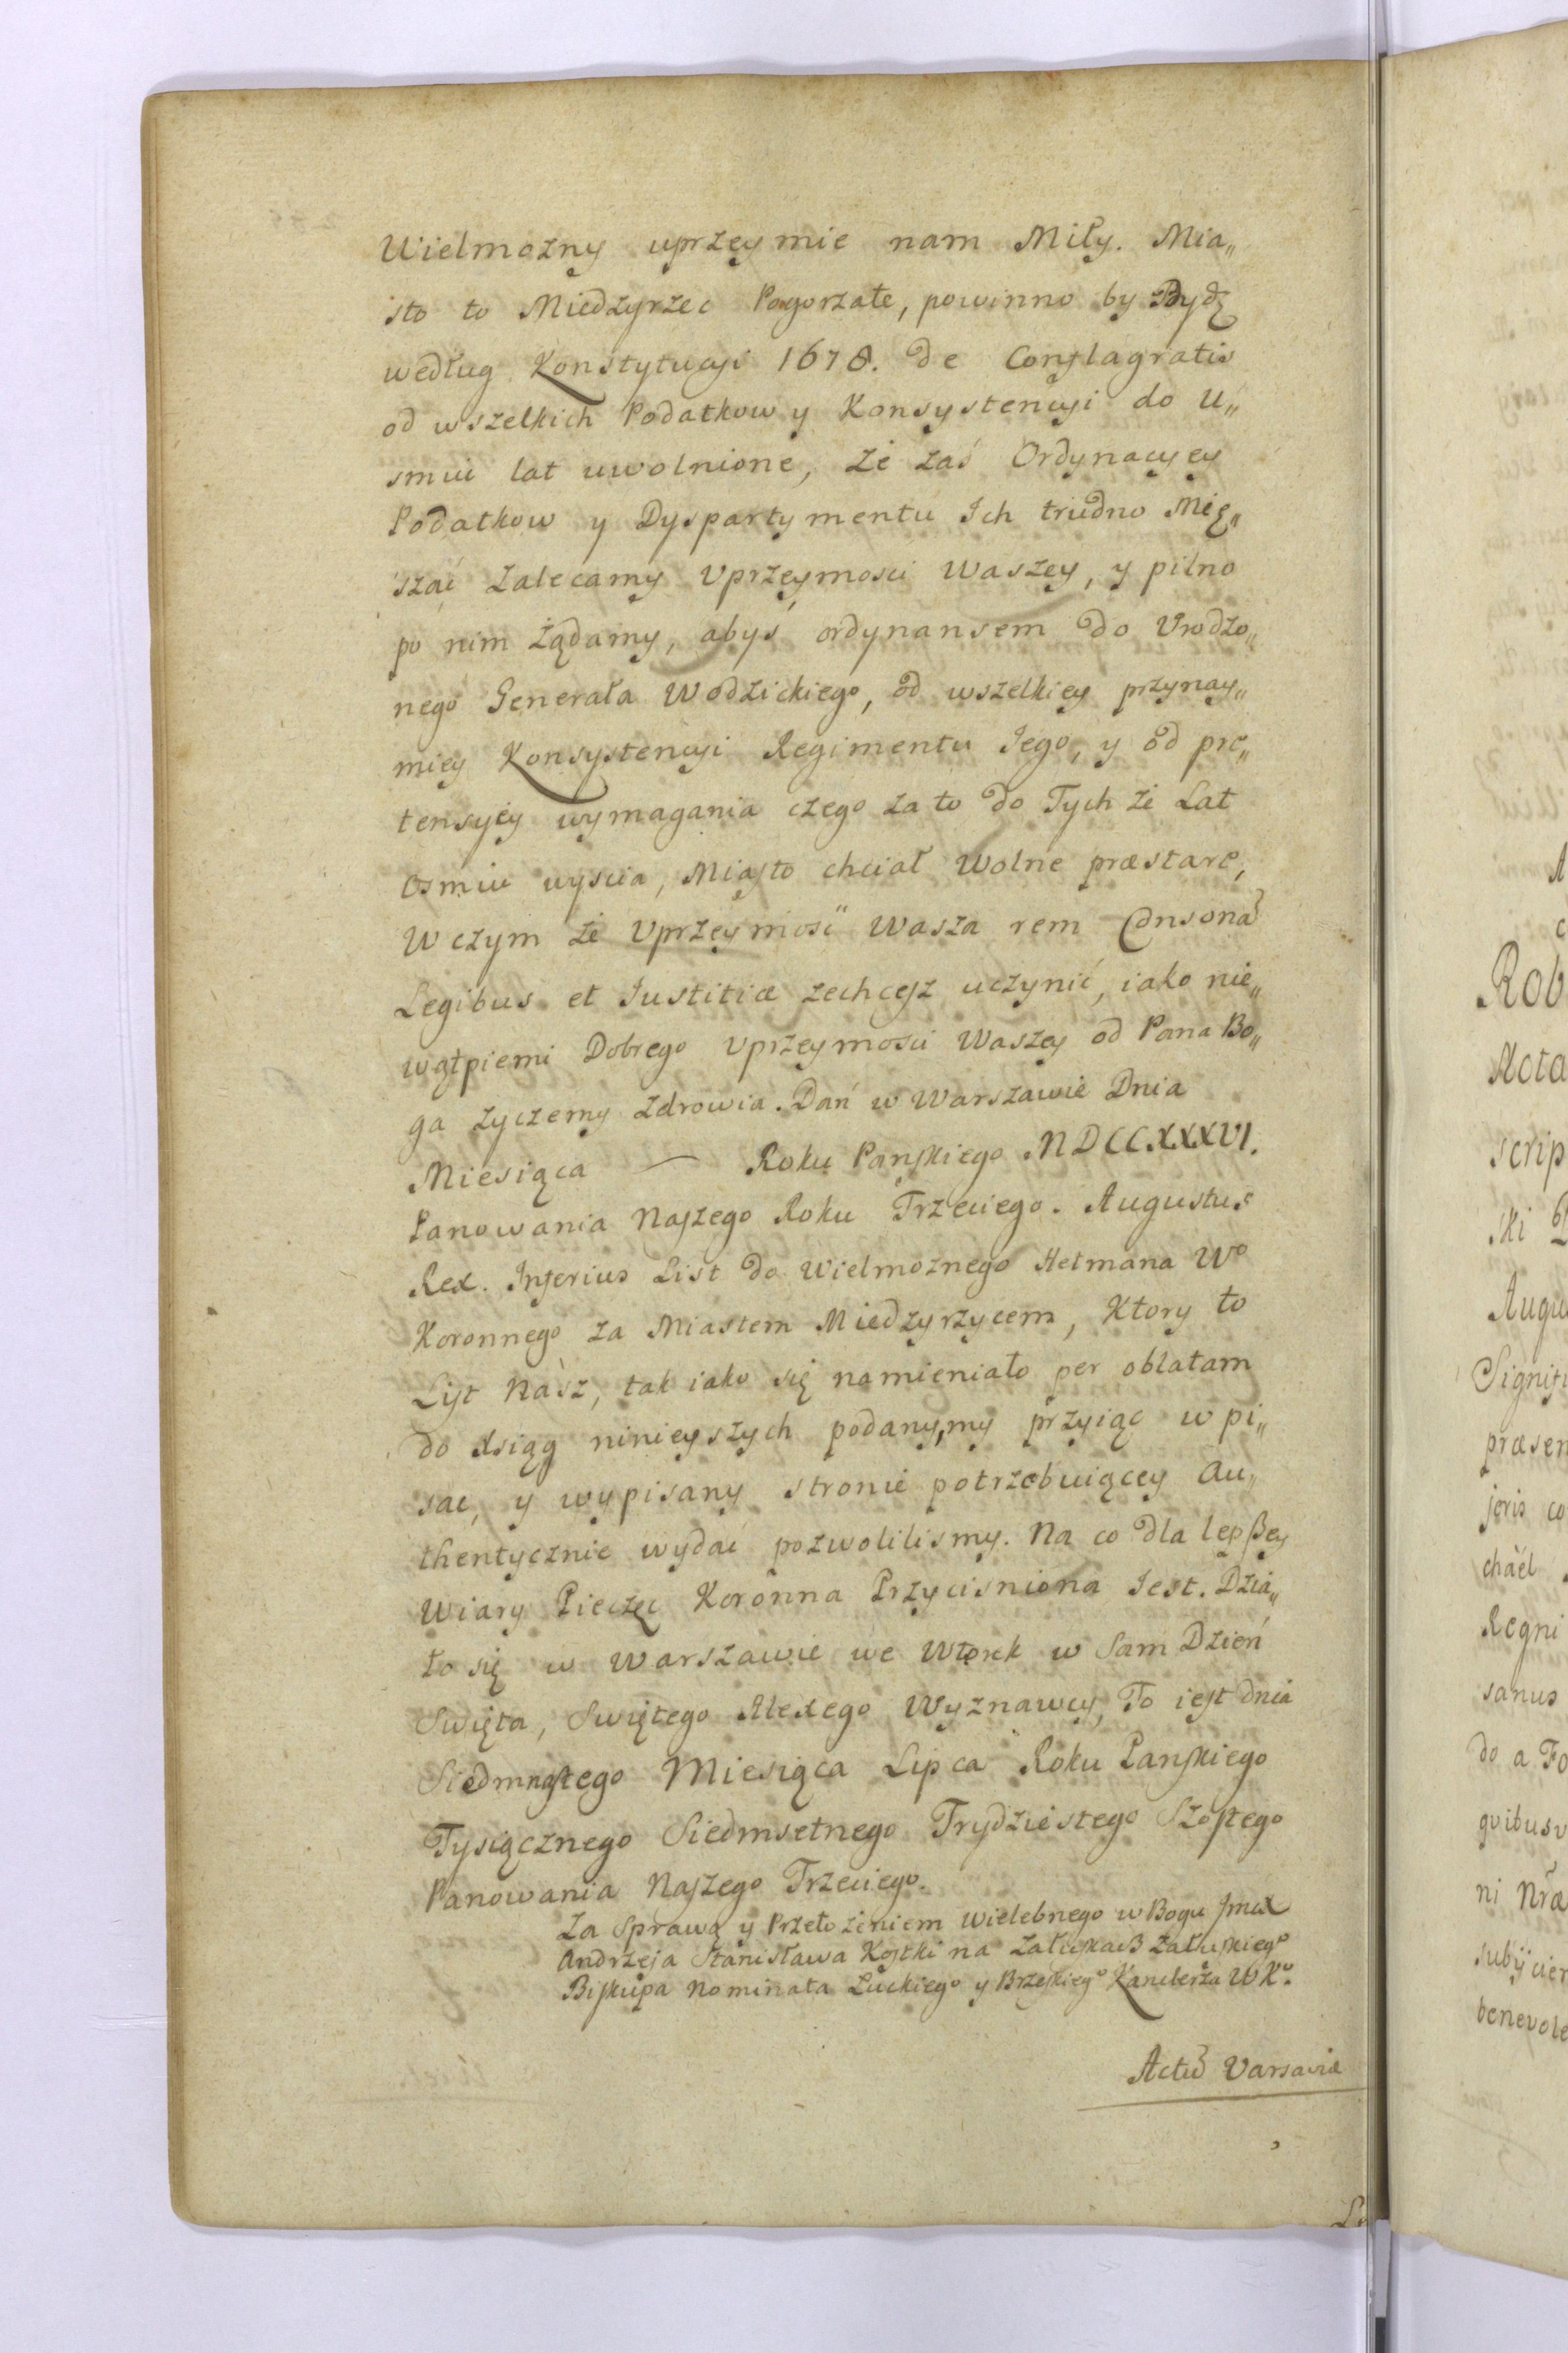 Wielmozny uprzeymie nam Miły. Mia„
sto to Miedzyrzec Pogorzałe, powinno by Bydz
według Konstytucyi 1678. de Conflagratis
od wszelkich Podatkow y Konsystencyi do U„
smiu lat uwolnione, że zaś Ordynacyey
Podatkow y Dyspartymentu Ich trudno Mię„
szać zalecamy Uprzeymosci Waszey, y pilno
po nim żądamy, abyś ordynansem do Urodzo„
nego Generała Wodzickiego, od wszelkiey przynay„
miey Konsystencyi Regimentu Jego, y od pre„
tensyey wymagania czego za to do Tych że Lat
Osmiu wyscia, Miasto chciał Wolne præstare,
W czym że Uprzeymość Wasza rem Consona
Legibus et Justitiæ zechcesz uczynić, iako nie„
wątpiemi Dobrego Uprzeymosci Waszey od Pana Bo„
ga zyczemy zdrowia. Dań w Warszawie Dnia
Miesiąca — Roku Panskiego MDCCXXXVI.
Panowania Naszego Roku Trzeciego. Augustus
Rex. Inferius List do Wielmoznego Hetmana Wo
Koronnego za Miastem Miedzyrzycem, Ktory to
List Nàsz, tak iako się namieniało per oblatam
do Xsiąg ninieyszych podany, my przyiąc wpi„
sac, y wypisany stronie potrzebuiącey Au„
thentycznie wydać pozwolilismy. Na co dla lepßey
Wiary Pieczęc Koronna Przycisniona Jest. Dzia„
ło się w Warszawie we Wtorek w Sam Dzień
Swięta, Swiętego Alexego Wyznawcy, To iest dnia
Siedmnastego Miesiąca Lipca Roku Panskiego
Tysiącznego Siedmsetnego Trydziestego Szostego
Panowania Naszego Trzeciego.
Za Sprawą y Przełożeniem Wielebnego w Bogu Jmcx
Andrzeja Stanisława Kostki na Załuskaß Załuskiego
Biskupa Nominata Łuckiego y Brzeskiego Kanclerza WKo.
Actu Varsaviæ
Rob
Acta
scrip
ski
Augu
Signifi
præsen
jeris co
chaël
Regni
sanus
do a Fo
quibusv
ni Nræ
subijcien
benevole